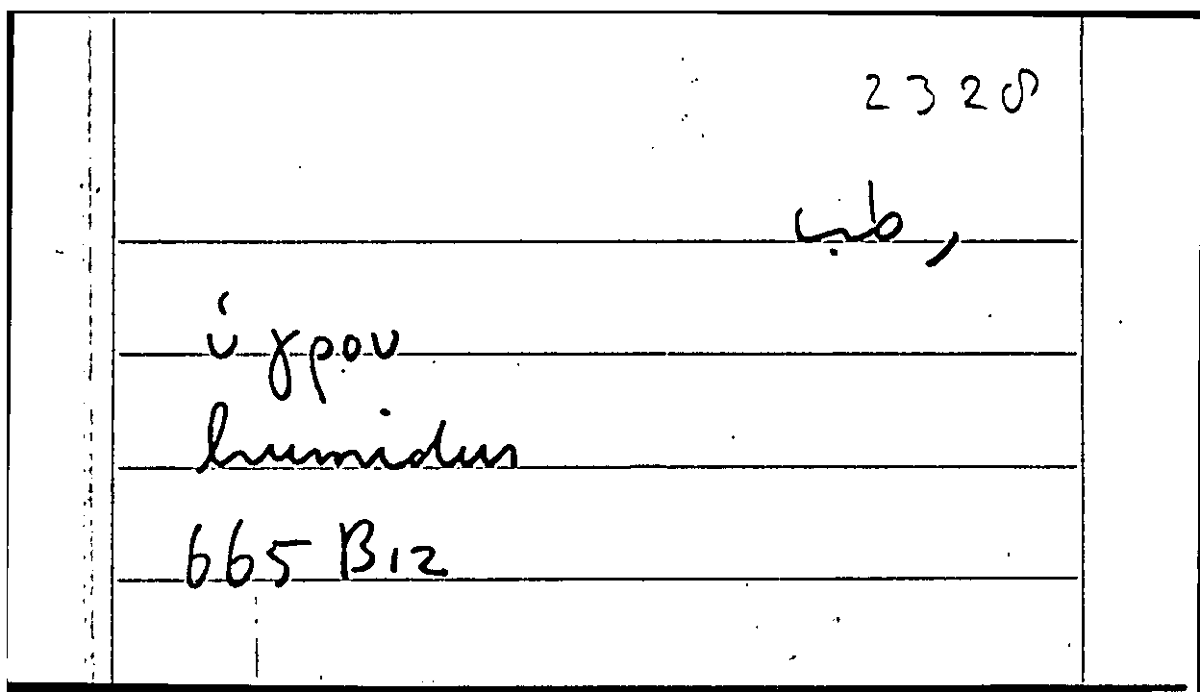 2328
رطب
ὑγρον
humidus
665 B12